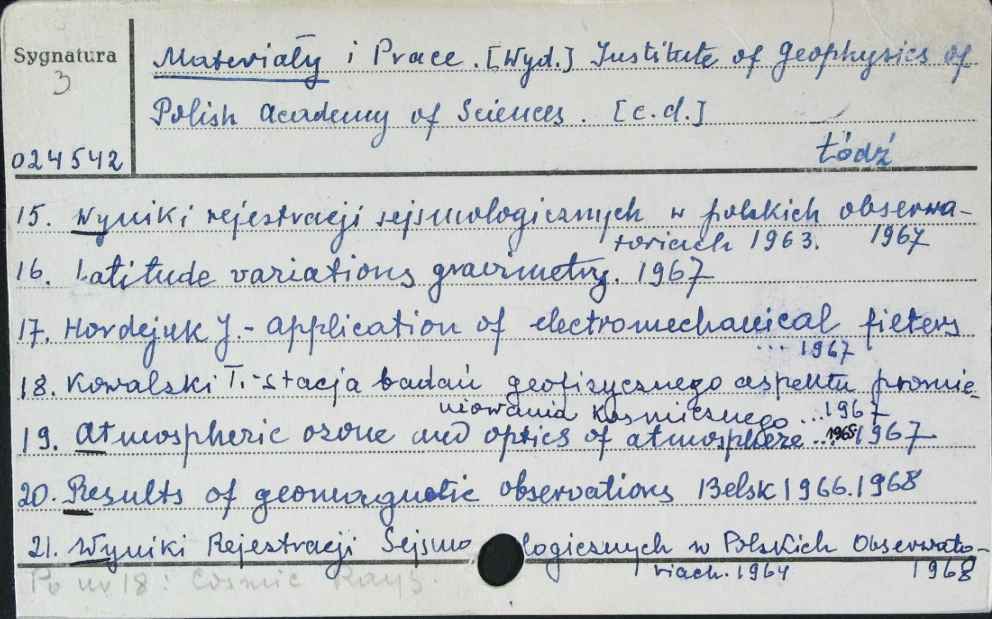 Sygnatura
3
Materiały i Prace. [Wyd.] Institute of Geophysics of
Polish Academy of Sciences. [c.d.]
024542
Łódź
15. Wyniki rejestracji sejsmologicznych w polskich obserwa-
toriach 1963. 1967
16. Latitude variations gravimetry. 1967
17. Hordejuk J. - Application of electromechanical filters
... 1967
18. Kowalski T. - Stacja badań geofizycznego aspektu promie-
niowania kosmicznego ... 1967
19. Atmospheric ozone and optics of atmosphere ... 1965 1967
20. Results of geomagnetic observations Belsk 1966. 1968
21. Wyniki Rejestracji Sejsmologicznych w Polskich Obserwato-
riach. 1964 1968
Po nr 18: Cosmic Rays.